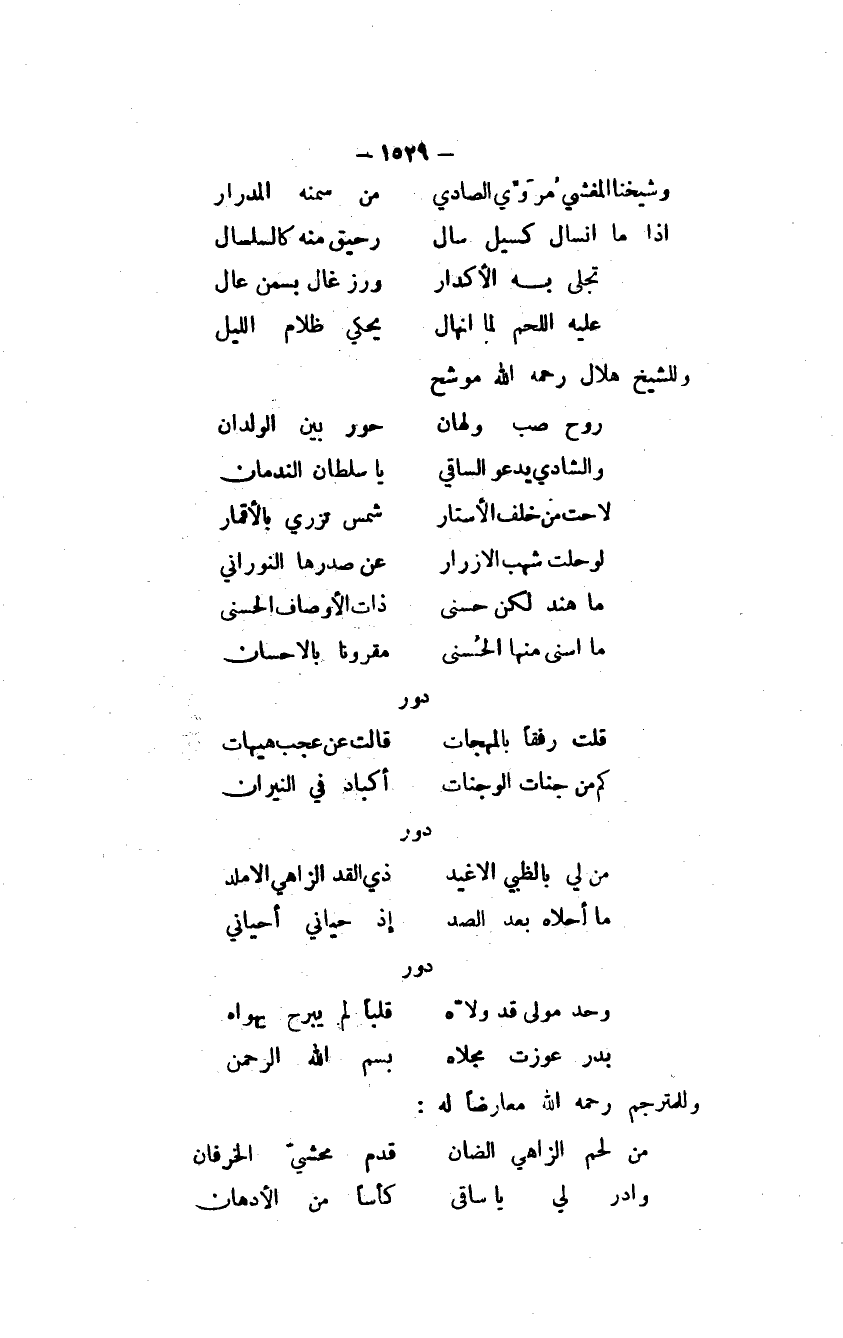 – ١٥٢٩ –
وشيخنا المغشي مُرَوّي الصادي من سمنه المدرار
اذا ما انسال كسيل سال رحيق منه كالسلسال
تجلى بـه الأكدار ورز غال بسمن عال
عليه اللحم لما انهال يحكي ظلام الليل
وللشيخ هلال رحمه الله موشح
روح صب ولهان حور بين الولدان
والشادي يدعو الساقي يا سلطان الندمان
لاحت من خلف الأستار شمس تزري بالأقمار
لو حلت شهب الازرار عن صدرها النوراني
ما هند لكن حسنى ذات الأوصاف الحسنى
ما اسنى منها الحُسنى مقرونا بالاحسان
دور
قلت رفقاً بالمهجات قالت عن عجب هيهات
كم من جنات الوجنات أكباد في النيران
دور
من لي بالظبي الاغيد ذي القد الزاهي الاملد
ما أحلاه بعد الصد إذ حياني أحياني
دور
وحد مولى قد ولاّه قلباً لم يبرح يهواه
بدر عوزت مجلاه بسم الله الرحمن
وللمترجم رحمه الله معارضاً له :
من لحم الزاهي الضان قدم محشيّ الخرفان
وادر لي يا ساقى كأسا من الأدهان